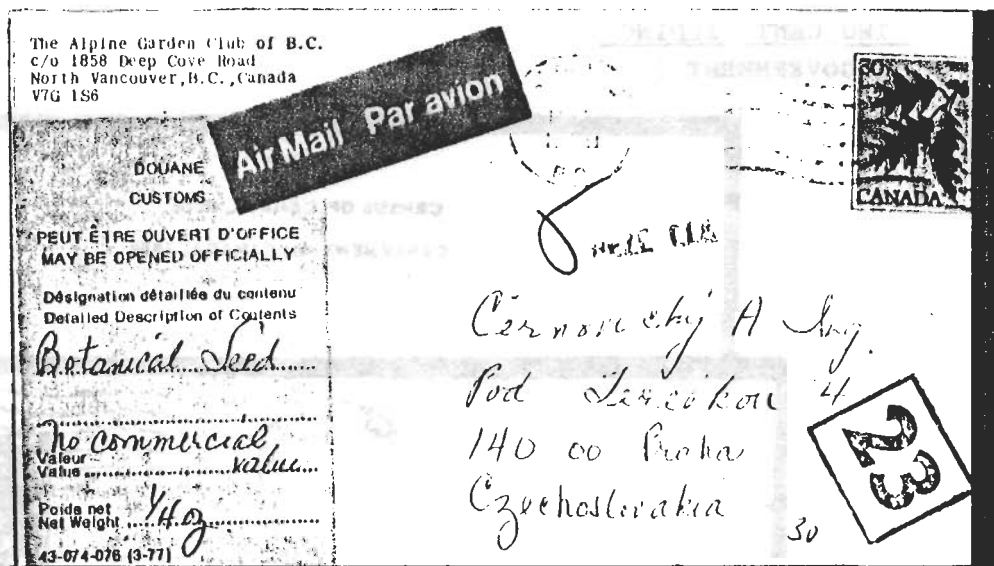 The Alpine Garden Club of B.C.
c/o 1858 Deep Cove Road
North Vancouver,B.C.,Canada
V7G 1S6
Air Mail Par avion
30
CANADA
DOUANE
CUSTOMS
PEUT ÊTRE OUVERT D'OFFICE
MAY BE OPENED OFFICIALLY
Désignation détaillée du contenu
Detailed Description of Contents
Botanical Seed
No commercial
Valeur
Value value
Poids net
Net Weight 1/4 oz
43-074-076 (3-77)
A Ing.
Pod 4
140 00 Praha
Czechoslovakia
30
23